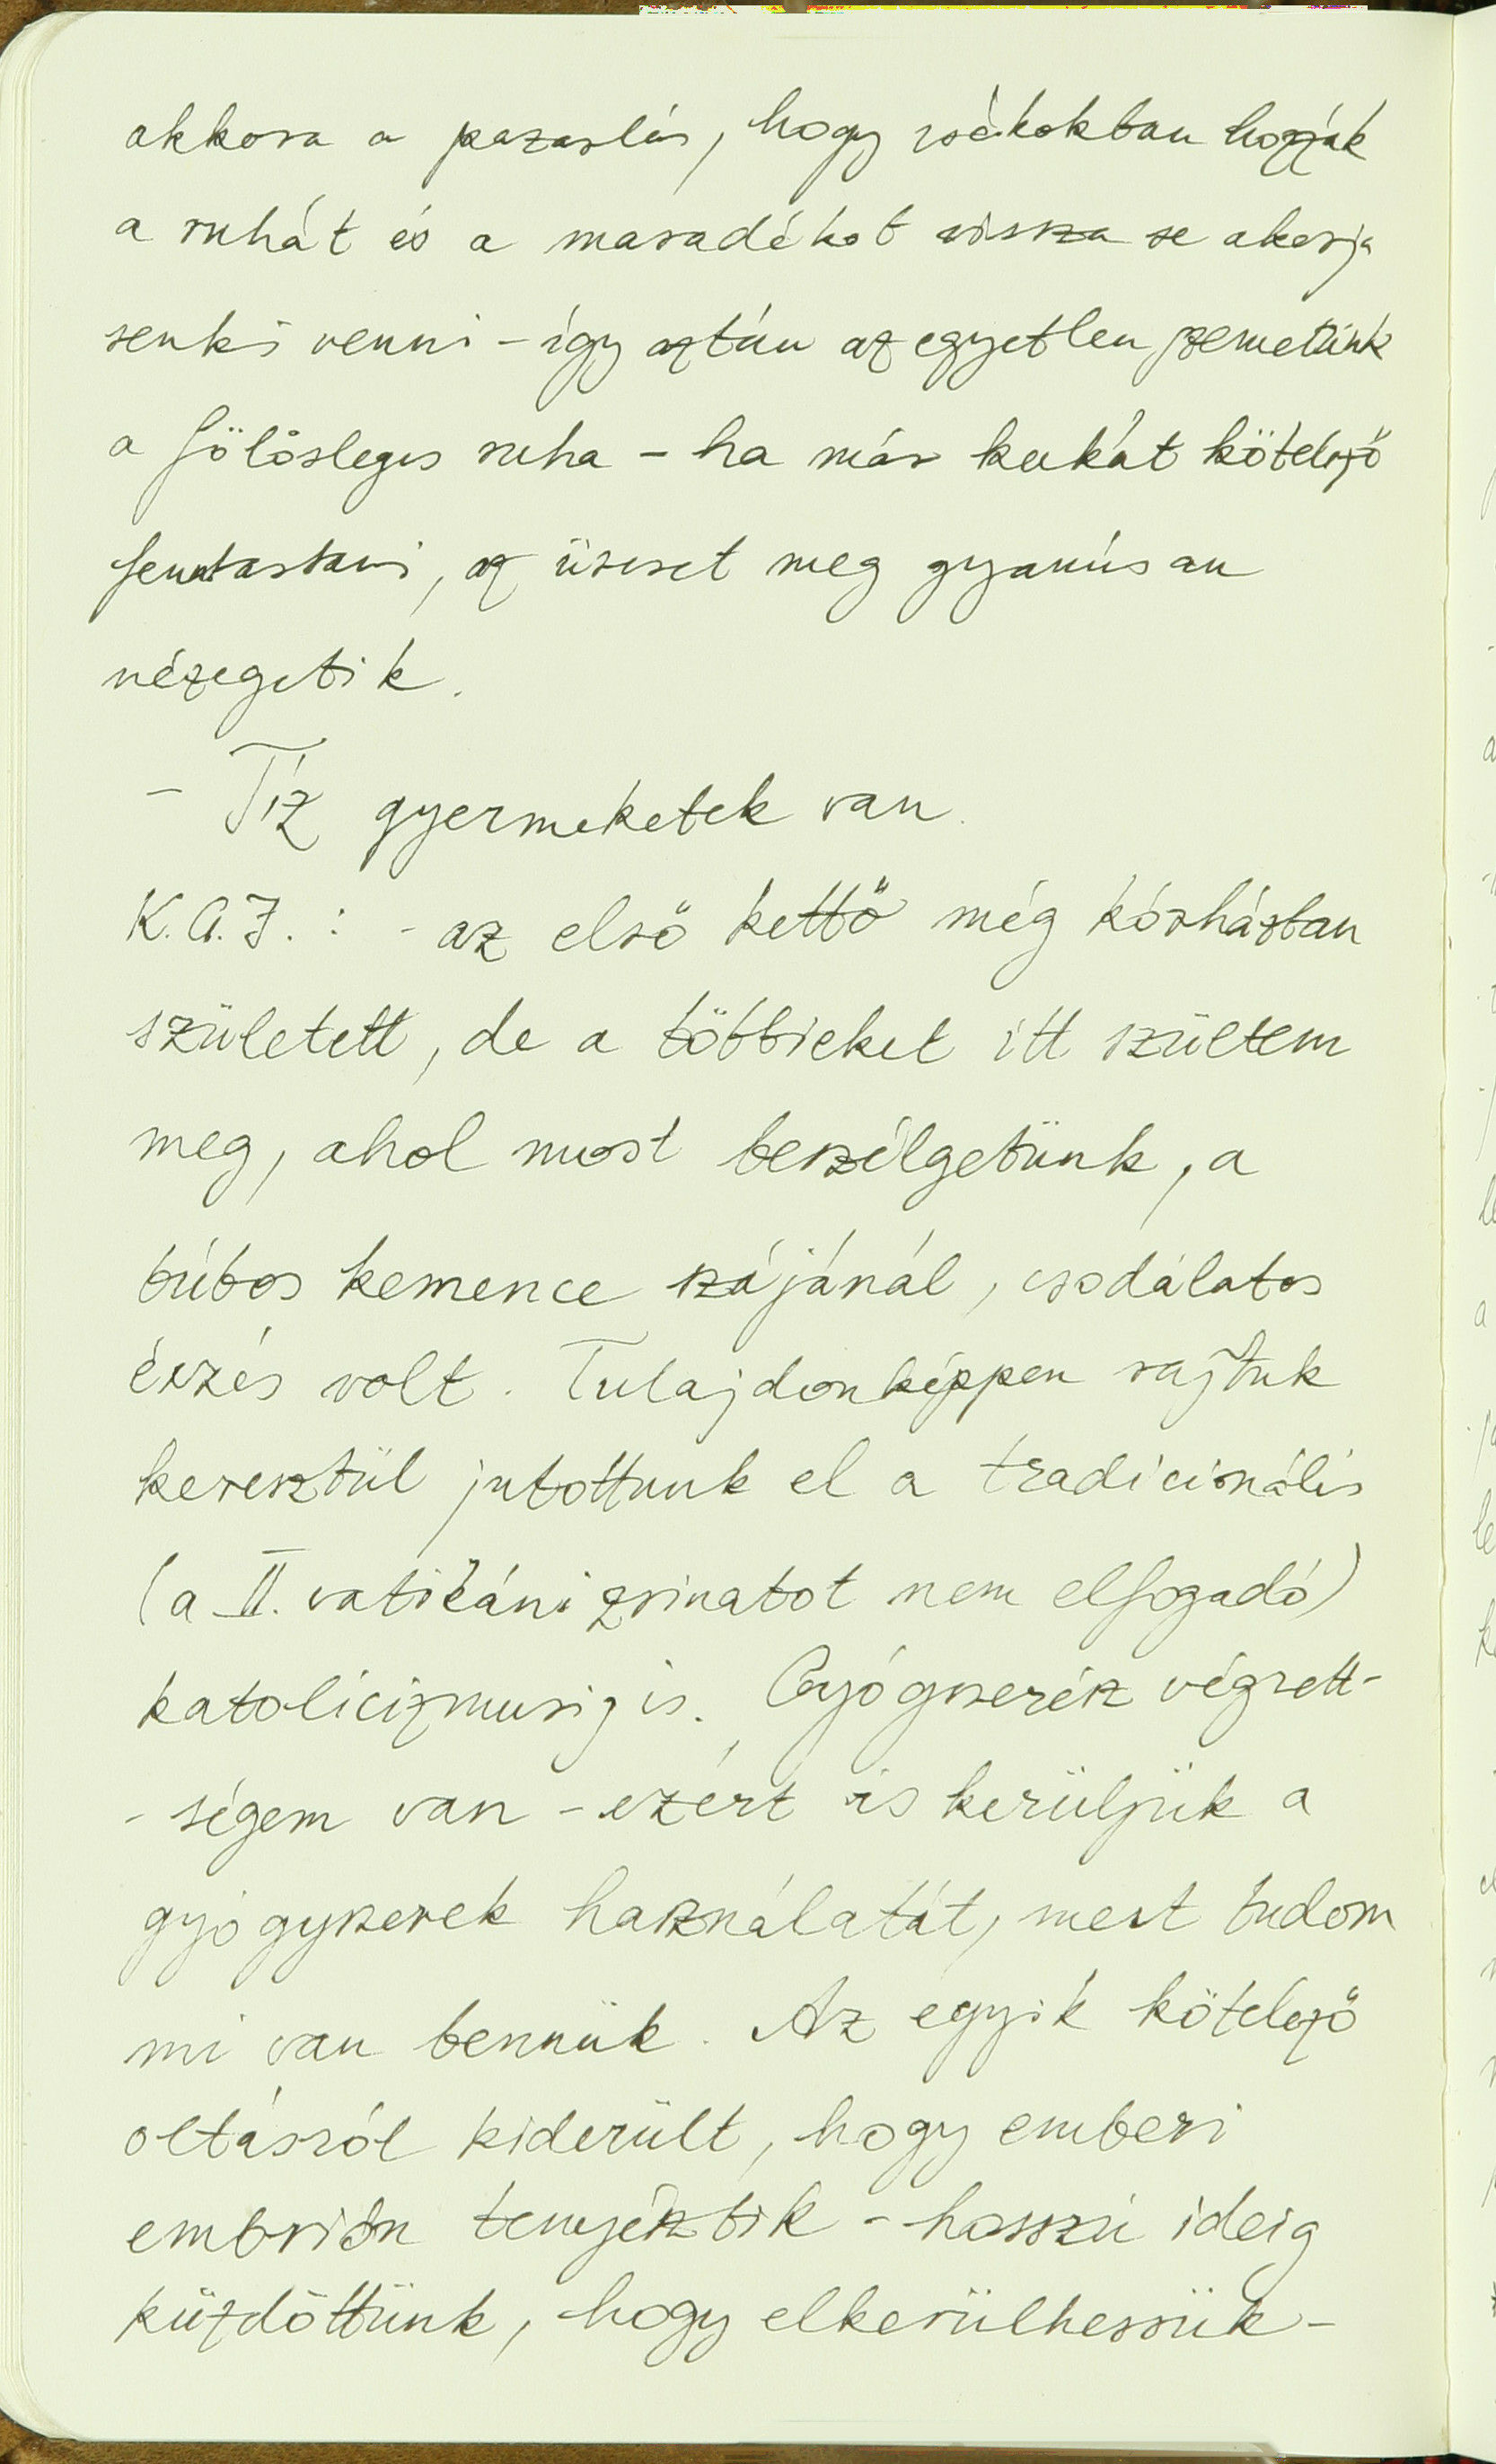 akkora a pazarlás, hogy zsákokban hozzák
a ruhát és a maradékot vissza se akarja
senki venni - így aztán az egyetlen szemetünk
a fölösleges ruha - ha már kukát kötelező
fenntartani, az üreset meg gyanúsan
nézegetik.
- Tíz gyermeketek van.
K.A.J. : - az első kettő még kórházban
született, de a többieket itt szültem
meg, ahol most beszélgetünk, a
búbos kemence szájánál, csodálatos
érzés volt. Tulajdonképpen rajtuk
keresztül jutottunk el a tradicionális
(a II. vatikáni zsinatot nem elfogadó)
katolicizmusig is. Gyógyszerész végzett-
- ségem van - ezért is kerüljük a
gyógyszerek használatát, mert tudom
mi van bennük. Az egyik kötelező
oltásról kiderült, hogy emberi
embrión tenyésztik - hosszú ideig
küzdöttünk, hogy elkerülhessük -